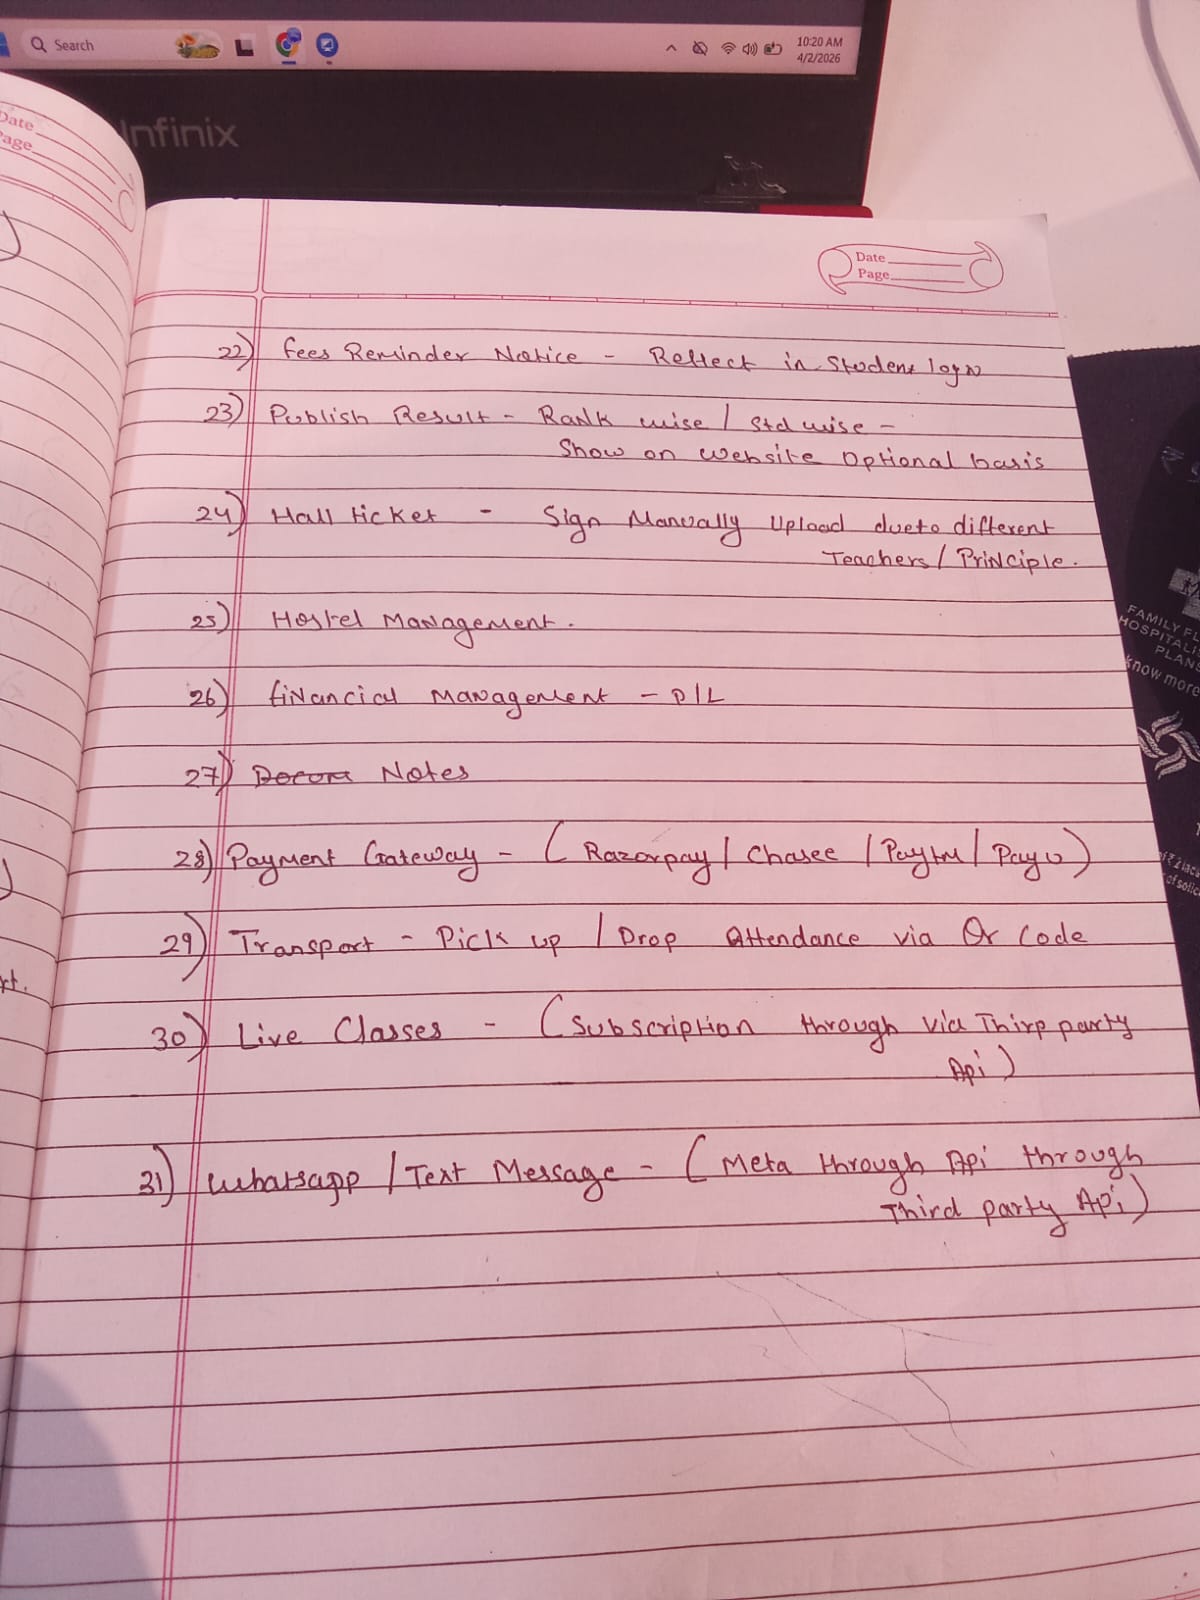 Search
10:20 AM
4/2/2026
Infinix
Date
Page
Date
Page
22) Fees Reminder Notice - Reflect in Student login
23) Publish Result - Rank wise / Std wise -
Show on Website Optional basis
24) Hall ticket - Sign Manually Upload dueto different
Teachers / Principle.
25) Hostel Management.
26) financial Management - P/L
27) Notes
28) Payment Gateway - ( Razorpay / Chasee / Paytm / Payu )
29) Transport - Pick up / Drop Attendance via Qr Code
30) Live Classes - ( Subscription through via Thirp party
Api )
31) Whatsapp / Text Message - ( Meta through Api through
Third party Api )
FAMILY
HOSPITALI
PLAN
know more